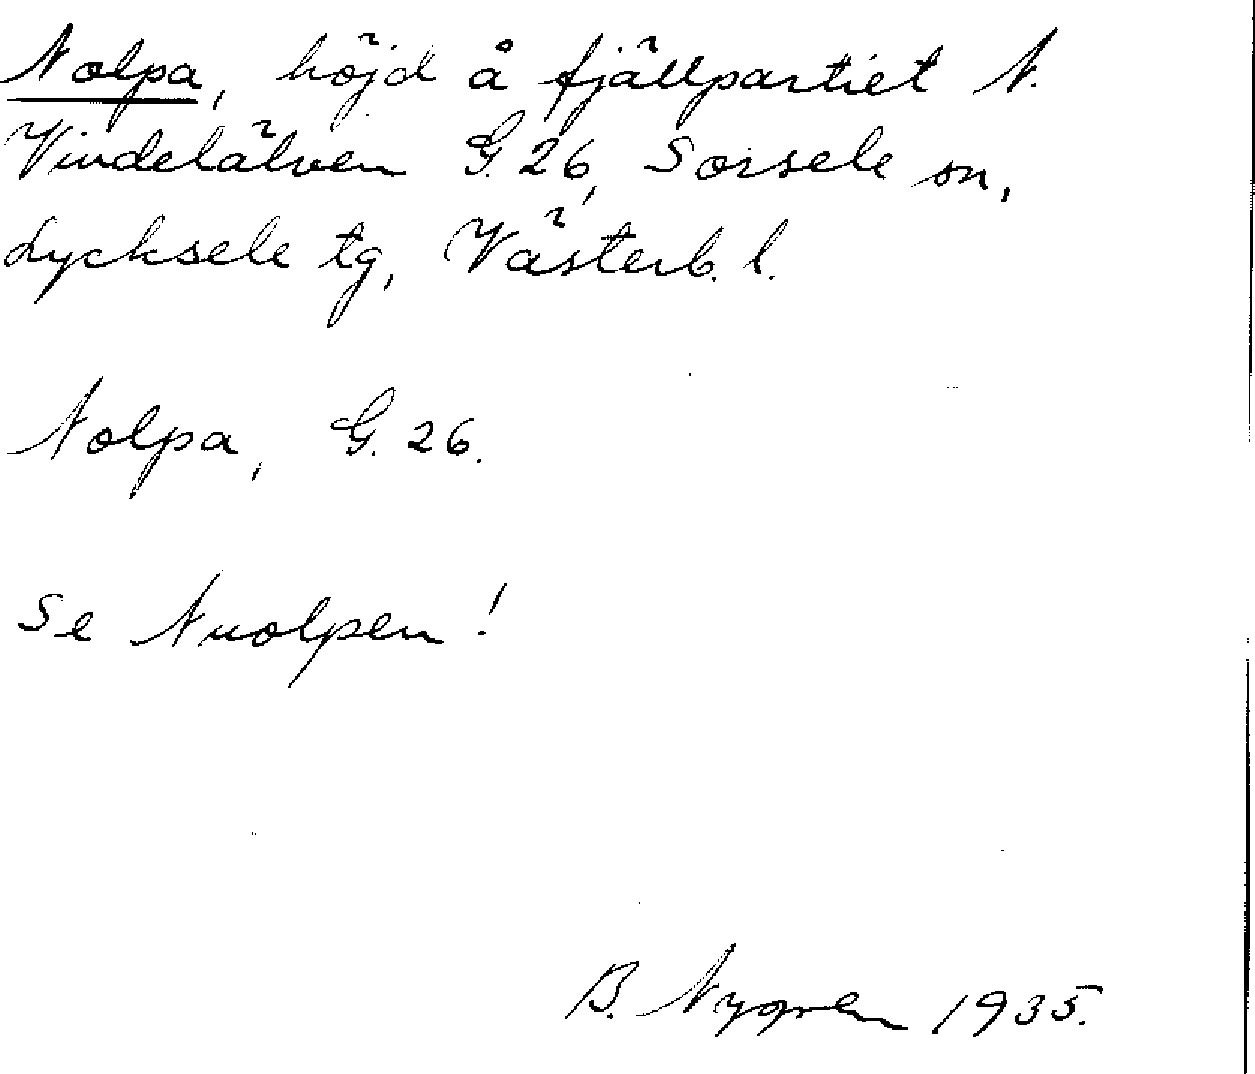 Nolpa, höjd å fjällpartiet N.
Vindelälven G. 26, Sorsele sn,
Lycksele tg, Västerb. l.
Nolpa, G. 26.
Se Nuolpen!
B. Nygren 1935.